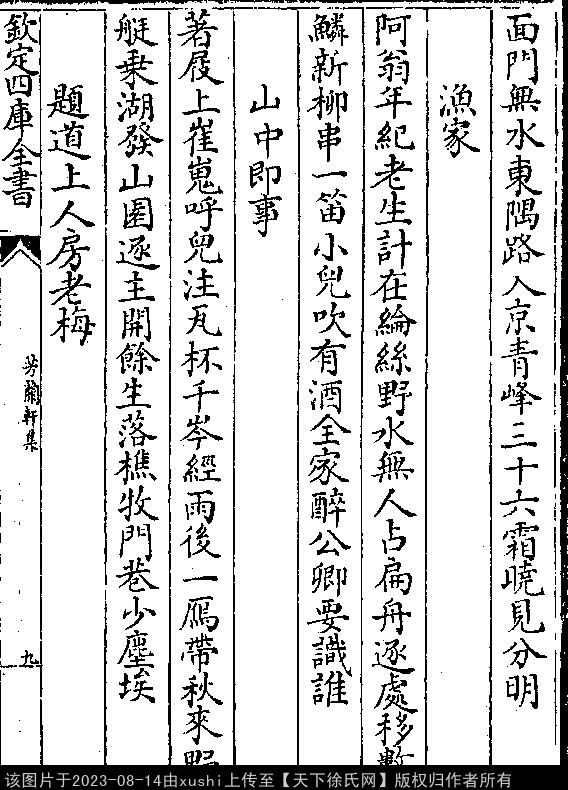 面門無水東隅路入京青峰三十六霜曉見分明
漁家
阿翁年紀老生計在綸絲野水無人占扁舟逐處移數
鱗新柳串一笛小兒吹有酒全家醉公卿要識誰
山中即事
著屐上崔嵬呼兒注瓦杯千岑經雨後一鴈帶秋來野
艇乗湖發山園逐主開餘生落樵牧門巷少塵埃
題道上人房老梅
欽定四庫全書
芳蘭軒集
九
该图片于2023-08-14由xushi上传至【天下徐氏网】版权归作者所有